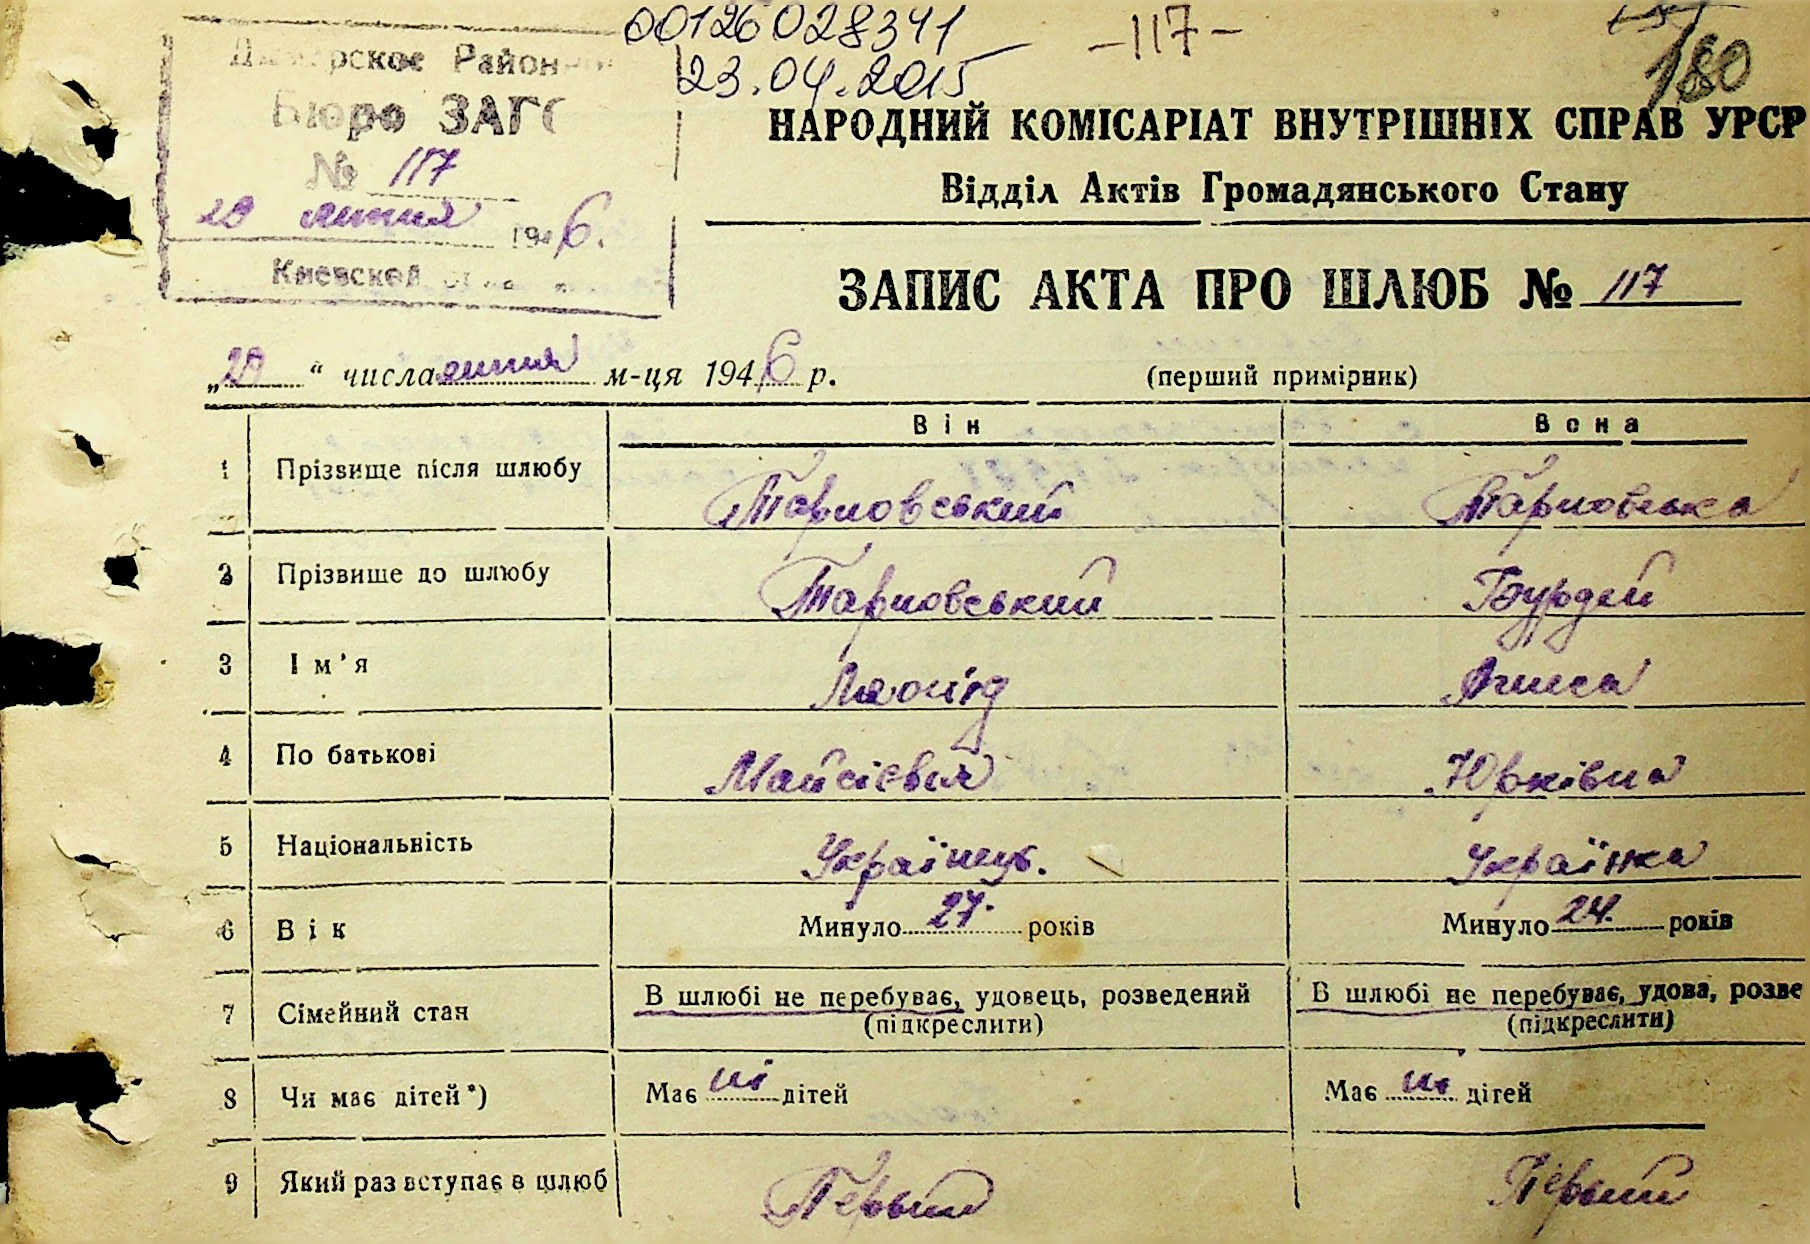 00126028341
23.04.2015
-117-
180
Районн
Бюро ЗАГС
№ 117
20 липня 1946.
Киевской
НАРОДНИЙ КОМІСАРІАТ ВНУТРІШНІХ СПРАВ УРСР
Відділ Актів Громадянського Стану
ЗАПИС АКТА ПРО ШЛЮБ № 117
„20“ числа липня м-ця 1946 р.
(перший примірник)
Він Вона
1 Прізвище після шлюбу Тарновський Тарновська
2 Прізвище до шлюбу Тарновський Бурдей
3 Ім'я Леонід
4 По батькові Майсієвич Юрківна
5 Національність Українець. Українка
6 Вік Минуло 27 років Минуло 24 років
7 Сімейний стан В шлюбі не перебуває, удовець, розведений В шлюбі не перебуває, удова, розве
(підкреслити) (підкреслити)
8 Чи має дітей*) Має ні дітей Має ні дітей
9 Який раз вступає в шлюб Первый Первый